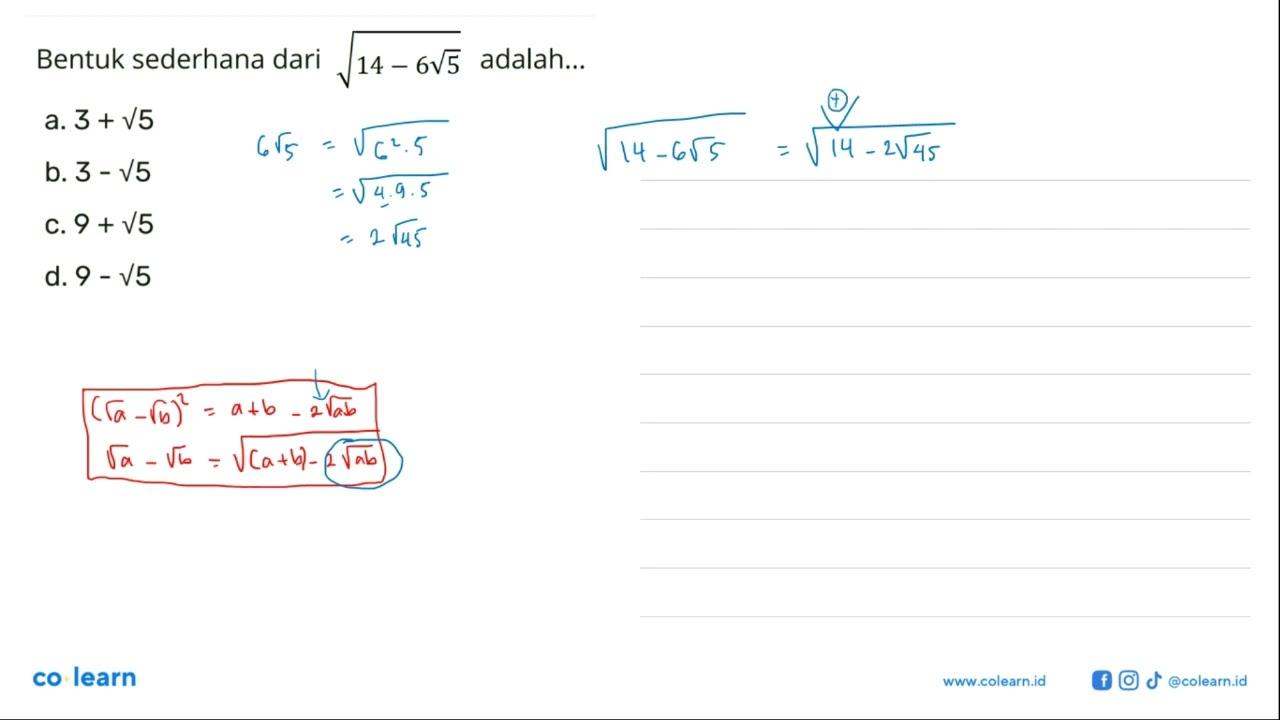 Bentuk sederhana dari √(14 − 6√5) adalah...
a. 3 + √5
b. 3 - √5
c. 9 + √5
d. 9 - √5
6√5 = √(6² · 5)
= √(4 · 9 · 5)
= 2√45
√(14 − 6√5) = √(14 − 2√45)
(+)
(√a − √b)² = a + b − 2√ab
√a − √b = √((a + b) − 2√ab)
co learn
www.colearn.id
@colearn.id